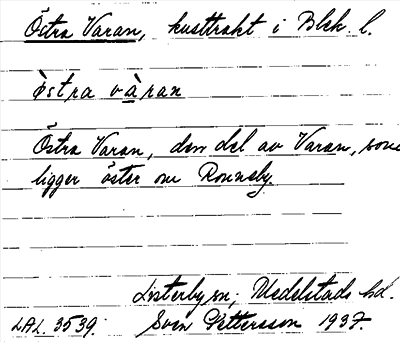 Östra Varan, kusttrakt i Blek. l.
östra vàran
Östra Varan, den del av Varan, som
ligger öster om Ronneby.
Listerby sn; Medelstads hd.
LAL. 3539. Sven Pettersson 1937.